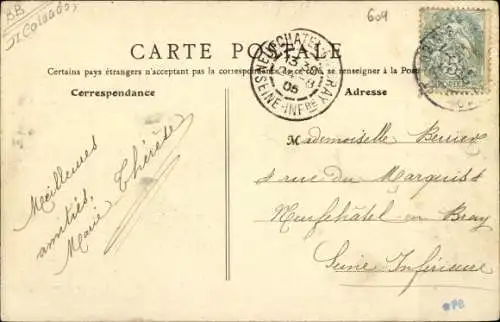 BB
St Calvados
609
CARTE POSTALE
Certains pays étrangers n'acceptant pas la correspondance se renseigner à la Poste
Correspondance
Adresse
NEUFCHATEL-EN-BRAY
05
SEINE-INFRE
Meilleures
amitiés,
Marie Thérèse
Mademoiselle
rue du Marquis
Neufchâtel en Bray
Seine Inférieure